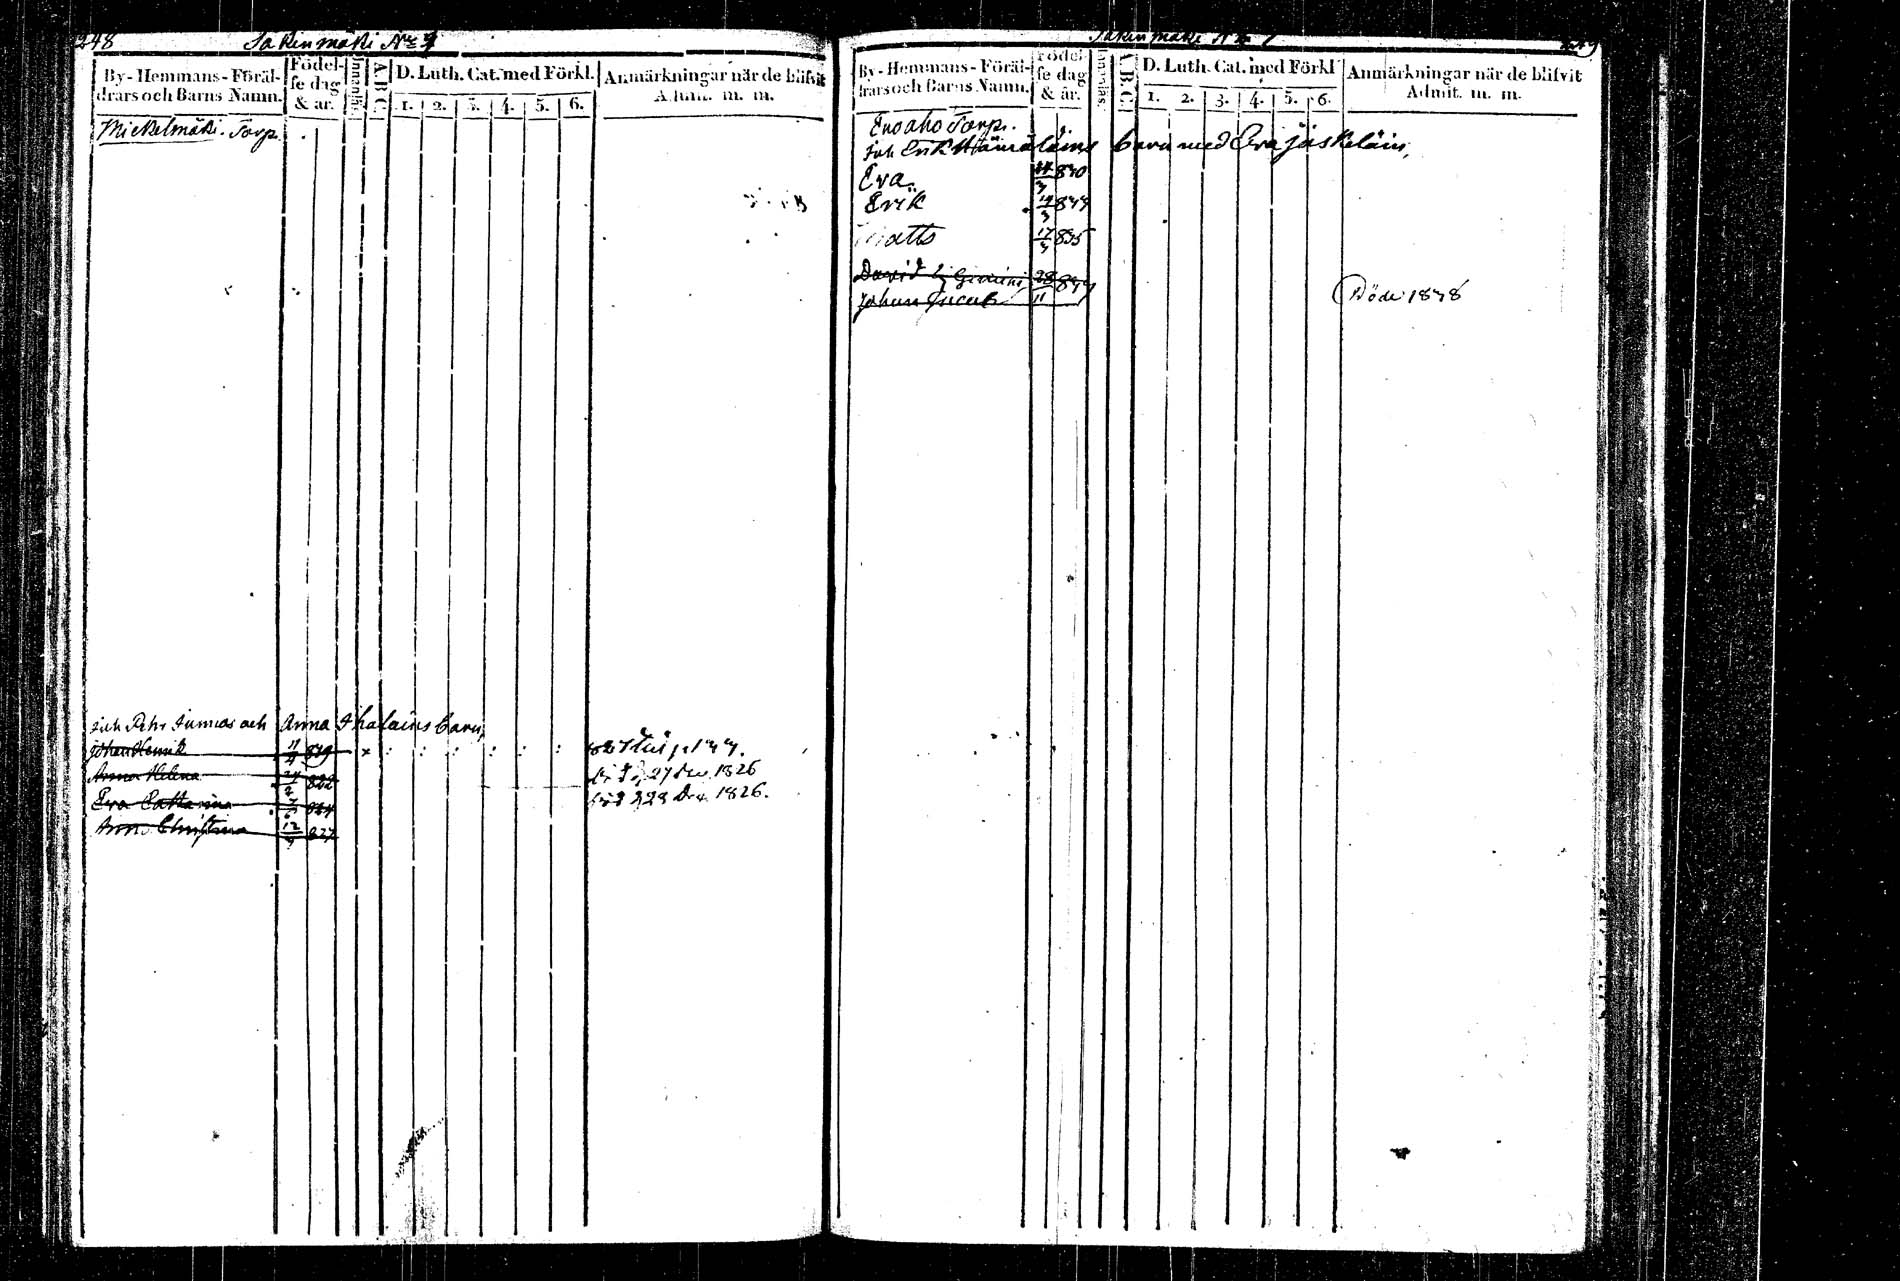 248
Sakinmäki No 7
By-Hemmans-Föräl-
drars och Barns Namn.
Födel-
se dag
& år.
Innanläs.
A.B.C.
D. Luth. Cat. med Förkl.
1. 2. 3. 4. 5. 6.
Anmärkningar när de blifvit
Admit. m. m.
Mickelmäki Torp.
och Anna Ihalains barn,
Johan Henrik 11/4 819 x : : : : : :
Anna Helena 24/2 822 27 Dec. 1826
Eva Catharina 7/6 824 28 Dec. 1826.
Anna Christina 12/9 827
Sakinmäki No 7
249
By-Hemmans-Föräl-
drars och Barns Namn.
Födel-
se dag
& år.
Innanläs.
A.B.C.
D. Luth. Cat. med Förkl
1. 2. 3. 4. 5. 6.
Anmärkningar när de blifvit
Admit. m. m.
Enoaho Torp.
Erik Hämäläins barn med Eva Jäskeläin,
Eva
Erik
Matts 17/3 835
David
Johan Jacob
Döde 1838